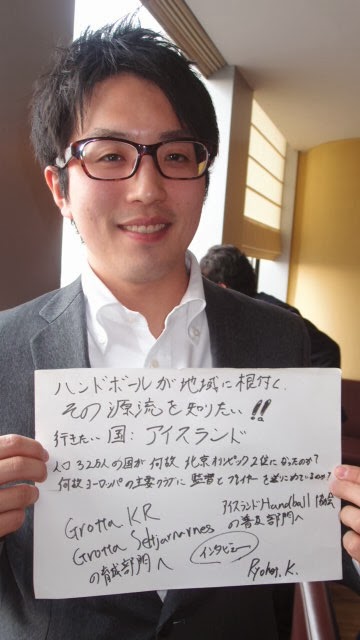 ハンドボールが地域に根付く、
その源流を知りたい!!
行きたい国:アイスランド
人口32万人の国が何故北京オリンピック2位になったのか?
何故ヨーロッパの主要クラブに監督とプレイヤーを送りこめているのか?
Grotta KR
Grotta Seltjarnarnes
の育成部門へ
アイスランドHandball協会
の普及部門へ
インタビュー
Ryohei.K.